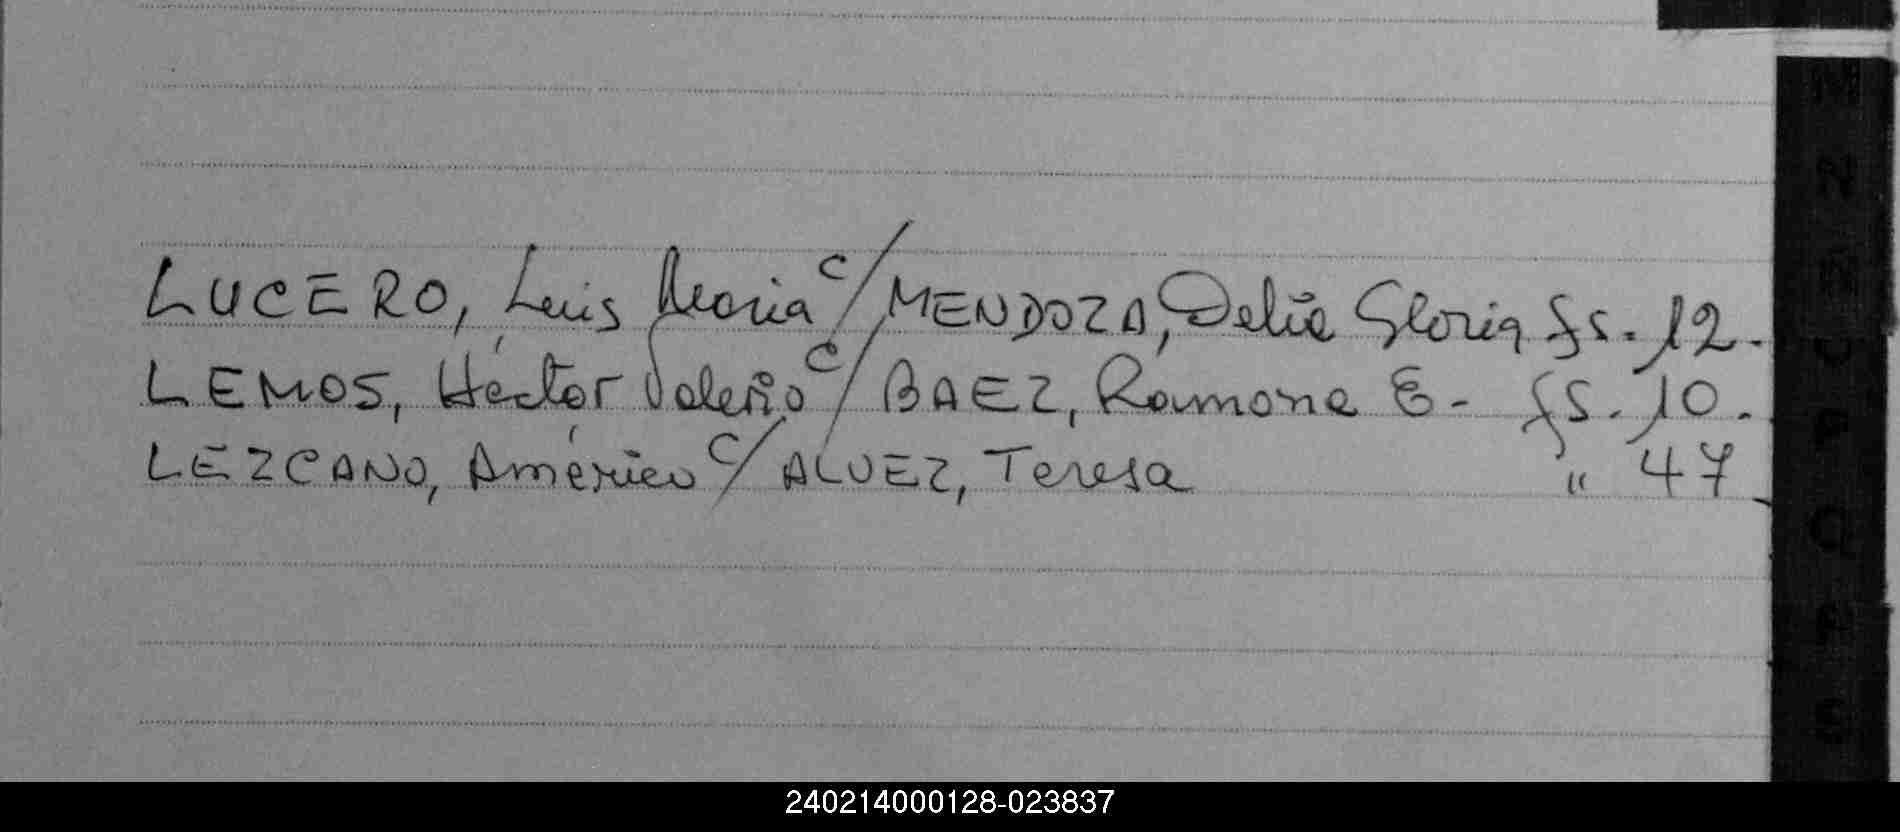 LUCERO, Luis Maria c/ MENDOZA, Delia Gloria fs. 12.
LEMOS, Héctor Valerio c/ BAEZ, Ramona E- fs. 10.
LEZCANO, Américo c/ ALVEZ, Teresa " 47
240214000128-023837